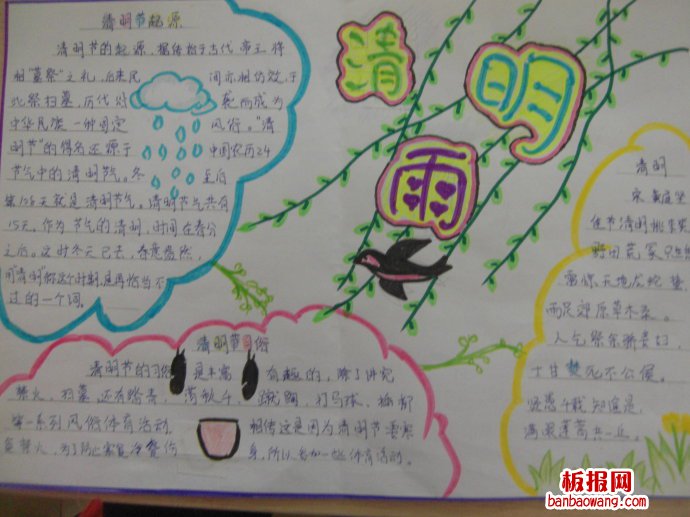 清明节起源
清明节的起源,据传始于古代帝王将
相"墓祭"之礼,后来民间亦相仿效,于
此祭扫墓,历代沿袭而成为
中华民族一种固定风俗。"清
明节"的得名还源于中国农历24
节气中的清明节气。冬至后
第105天就是清明节气。清明节气共有
15天。作为节气的清明,时间在春分
之后。这时冬天已去,春意盎然,
用"清明"称这个时期,是再恰当不
过的一个词。
清
明
雨
清明
宋 黄庭坚
佳节清明桃李笑
野田荒冢只生愁
雷惊天地龙蛇蛰
雨足郊原草木柔
人乞祭余骄妾妇
士甘焚死不公侯
贤愚千载知谁是
满眼蓬蒿共一丘
清明节习俗
清明节的习俗是丰富有趣的,除了讲究
禁火、扫墓,还有踏青、荡秋千、蹴鞠、打马球、插柳
等一系列风俗体育活动。相传这是因为清明节要寒
食禁火,为了防止寒食冷餐伤身,所以参加一些体育活动。
板报网
banbaowang.com